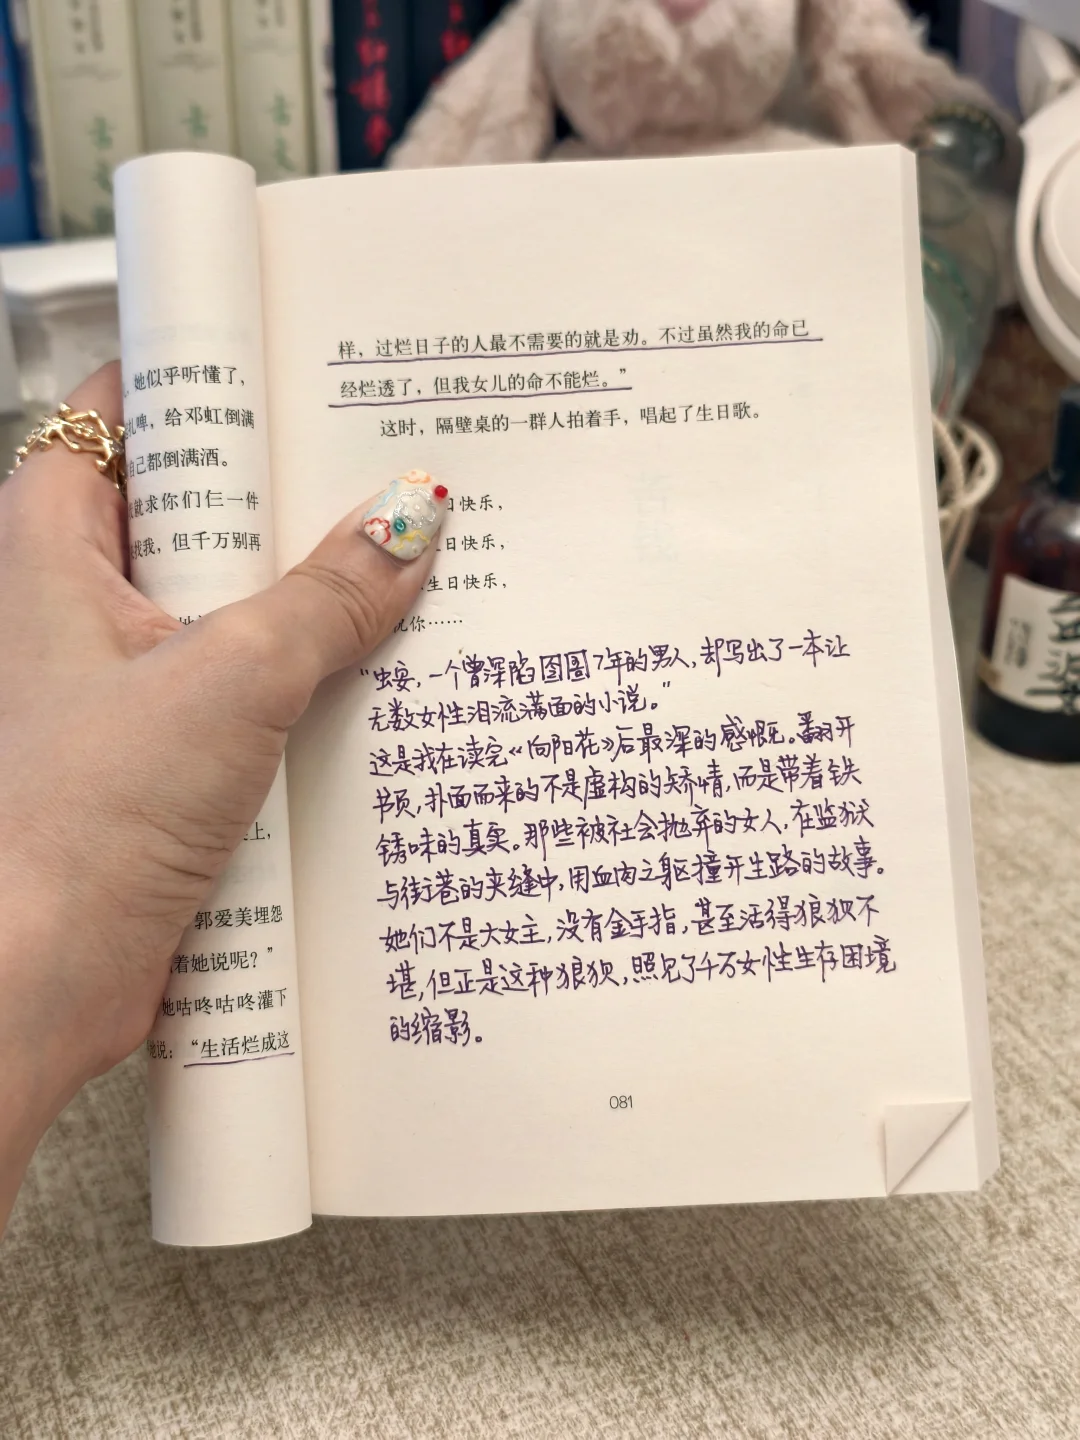 古文
古文
古文
红楼梦
她似乎听懂了，
扎啤，给邓虹倒满
自己都倒满酒。
就求你们仨一件
找我，但千万别再
上，
郭爱美埋怨
着她说呢？”
她咕咚咕咚灌下
说：“生活烂成这
样，过烂日子的人最不需要的就是劝。不过虽然我的命已
经烂透了，但我女儿的命不能烂。”
这时，隔壁桌的一群人拍着手，唱起了生日歌。
日快乐，
日快乐，
生日快乐，
祝你……
“虫安，一个曾深陷囹圄7年的男人，却写出了一本让
无数女性泪流满面的小说。”
这是我在读完《向阳花》后最深的感慨。翻开
书页，扑面而来的不是虚构的矫情，而是带着铁
锈味的真实。那些被社会抛弃的女人，在监狱
与街巷的夹缝中，用血肉之躯撞开生路的故事。
她们不是大女主，没有金手指，甚至活得狼狈不
堪，但正是这种狼狈，照见了千万女性生存困境
的缩影。
081